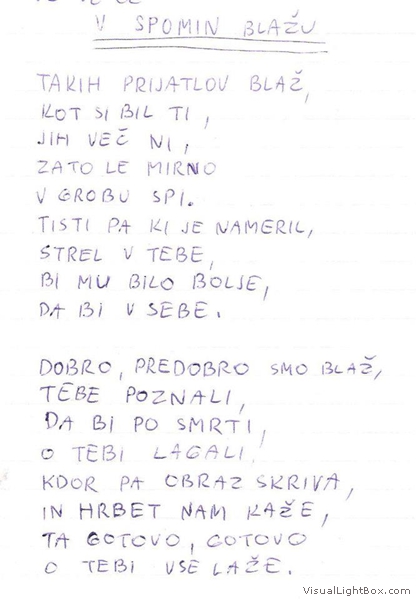 V SPOMIN BLAŽU
TAKIH PRIJATLOV BLAŽ,
KOT SI BIL TI,
JIH VEČ NI,
ZATO LE MIRNO
V GROBU SPI.
TISTI PA KI JE NAMERIL,
STREL V TEBE,
BI MU BILO BOLJE,
DA BI V SEBE.
DOBRO, PREDOBRO SMO BLAŽ,
TEBE POZNALI,
DA BI PO SMRTI,
O TEBI LAGALI,
KDOR PA OBRAZ SKRIVA,
IN HRBET NAM KAŽE,
TA GOTOVO, GOTOVO
O TEBI VSE LAŽE.
VisualLightBox.com